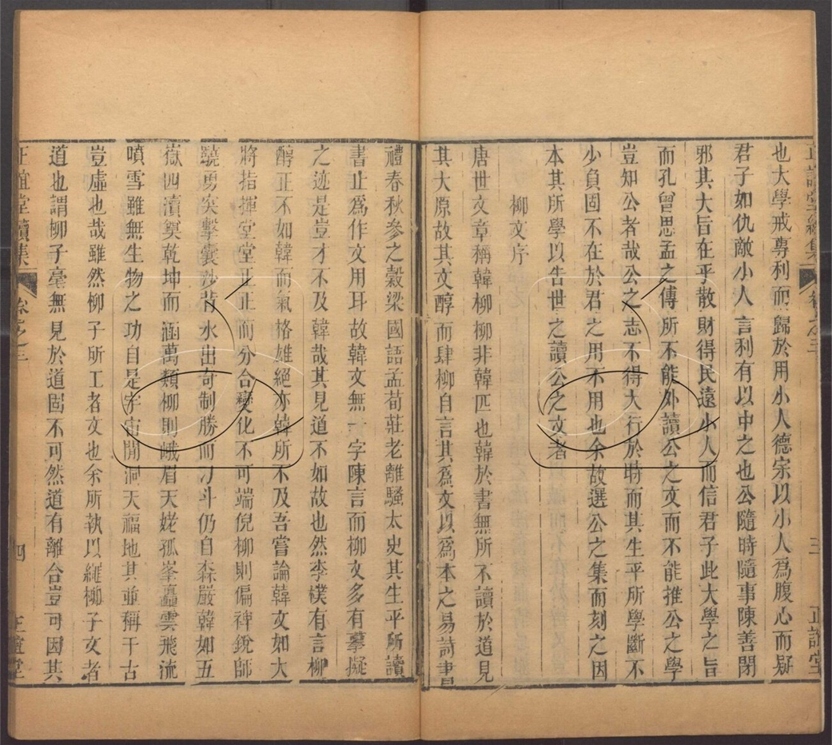 正誼堂續集 卷之三 三 正誼堂
也大學戒專利而歸於用小人德宗以小人爲腹心而疑
君子如仇敵小人言利有以中之也公隨時隨事陳善閉
邪其大旨在乎散財得民遠小人而信君子此大學之旨
而孔曾思孟之傳所不能外讀公之文而不能推公之學
豈知公者哉公之志不得大行於時而其生平所學斷不
少負固不在於君之用不用也余故選公之集而刻之因
本其所學以告世之讀公之文者
柳文序
唐世文章稱韓柳柳非韓匹也韓於書無所不讀於道見
其大原故其文醇而肆柳自言其爲文以爲本之易詩書
禮春秋參之穀梁國語孟荀莊老離騷太史其生平所讀
書止爲作文用耳故韓文無一字陳言而柳文多有摹擬
之迹是豈才不及韓哉其見道不如故也然李樸有言柳
醇正不如韓而氣格雄絕亦韓所不及吾嘗論韓文如大
將指揮堂堂正正而分合變化不可端倪柳則偏裨銳師
驍勇突擊囊沙背水出奇制勝而刁斗仍自森嚴韓如五
嶽四瀆奠乾坤而涵萬類柳則峨眉天姥孤峯矗雲飛流
噴雪雖無生物之功自是宇宙間洞天福地其並稱千古
豈虛也哉雖然柳子所工者文也余所執以繩柳子文者
道也謂柳子毫無見於道固不可然道有離合豈可因其
正誼堂續集 卷之三 四 正誼堂